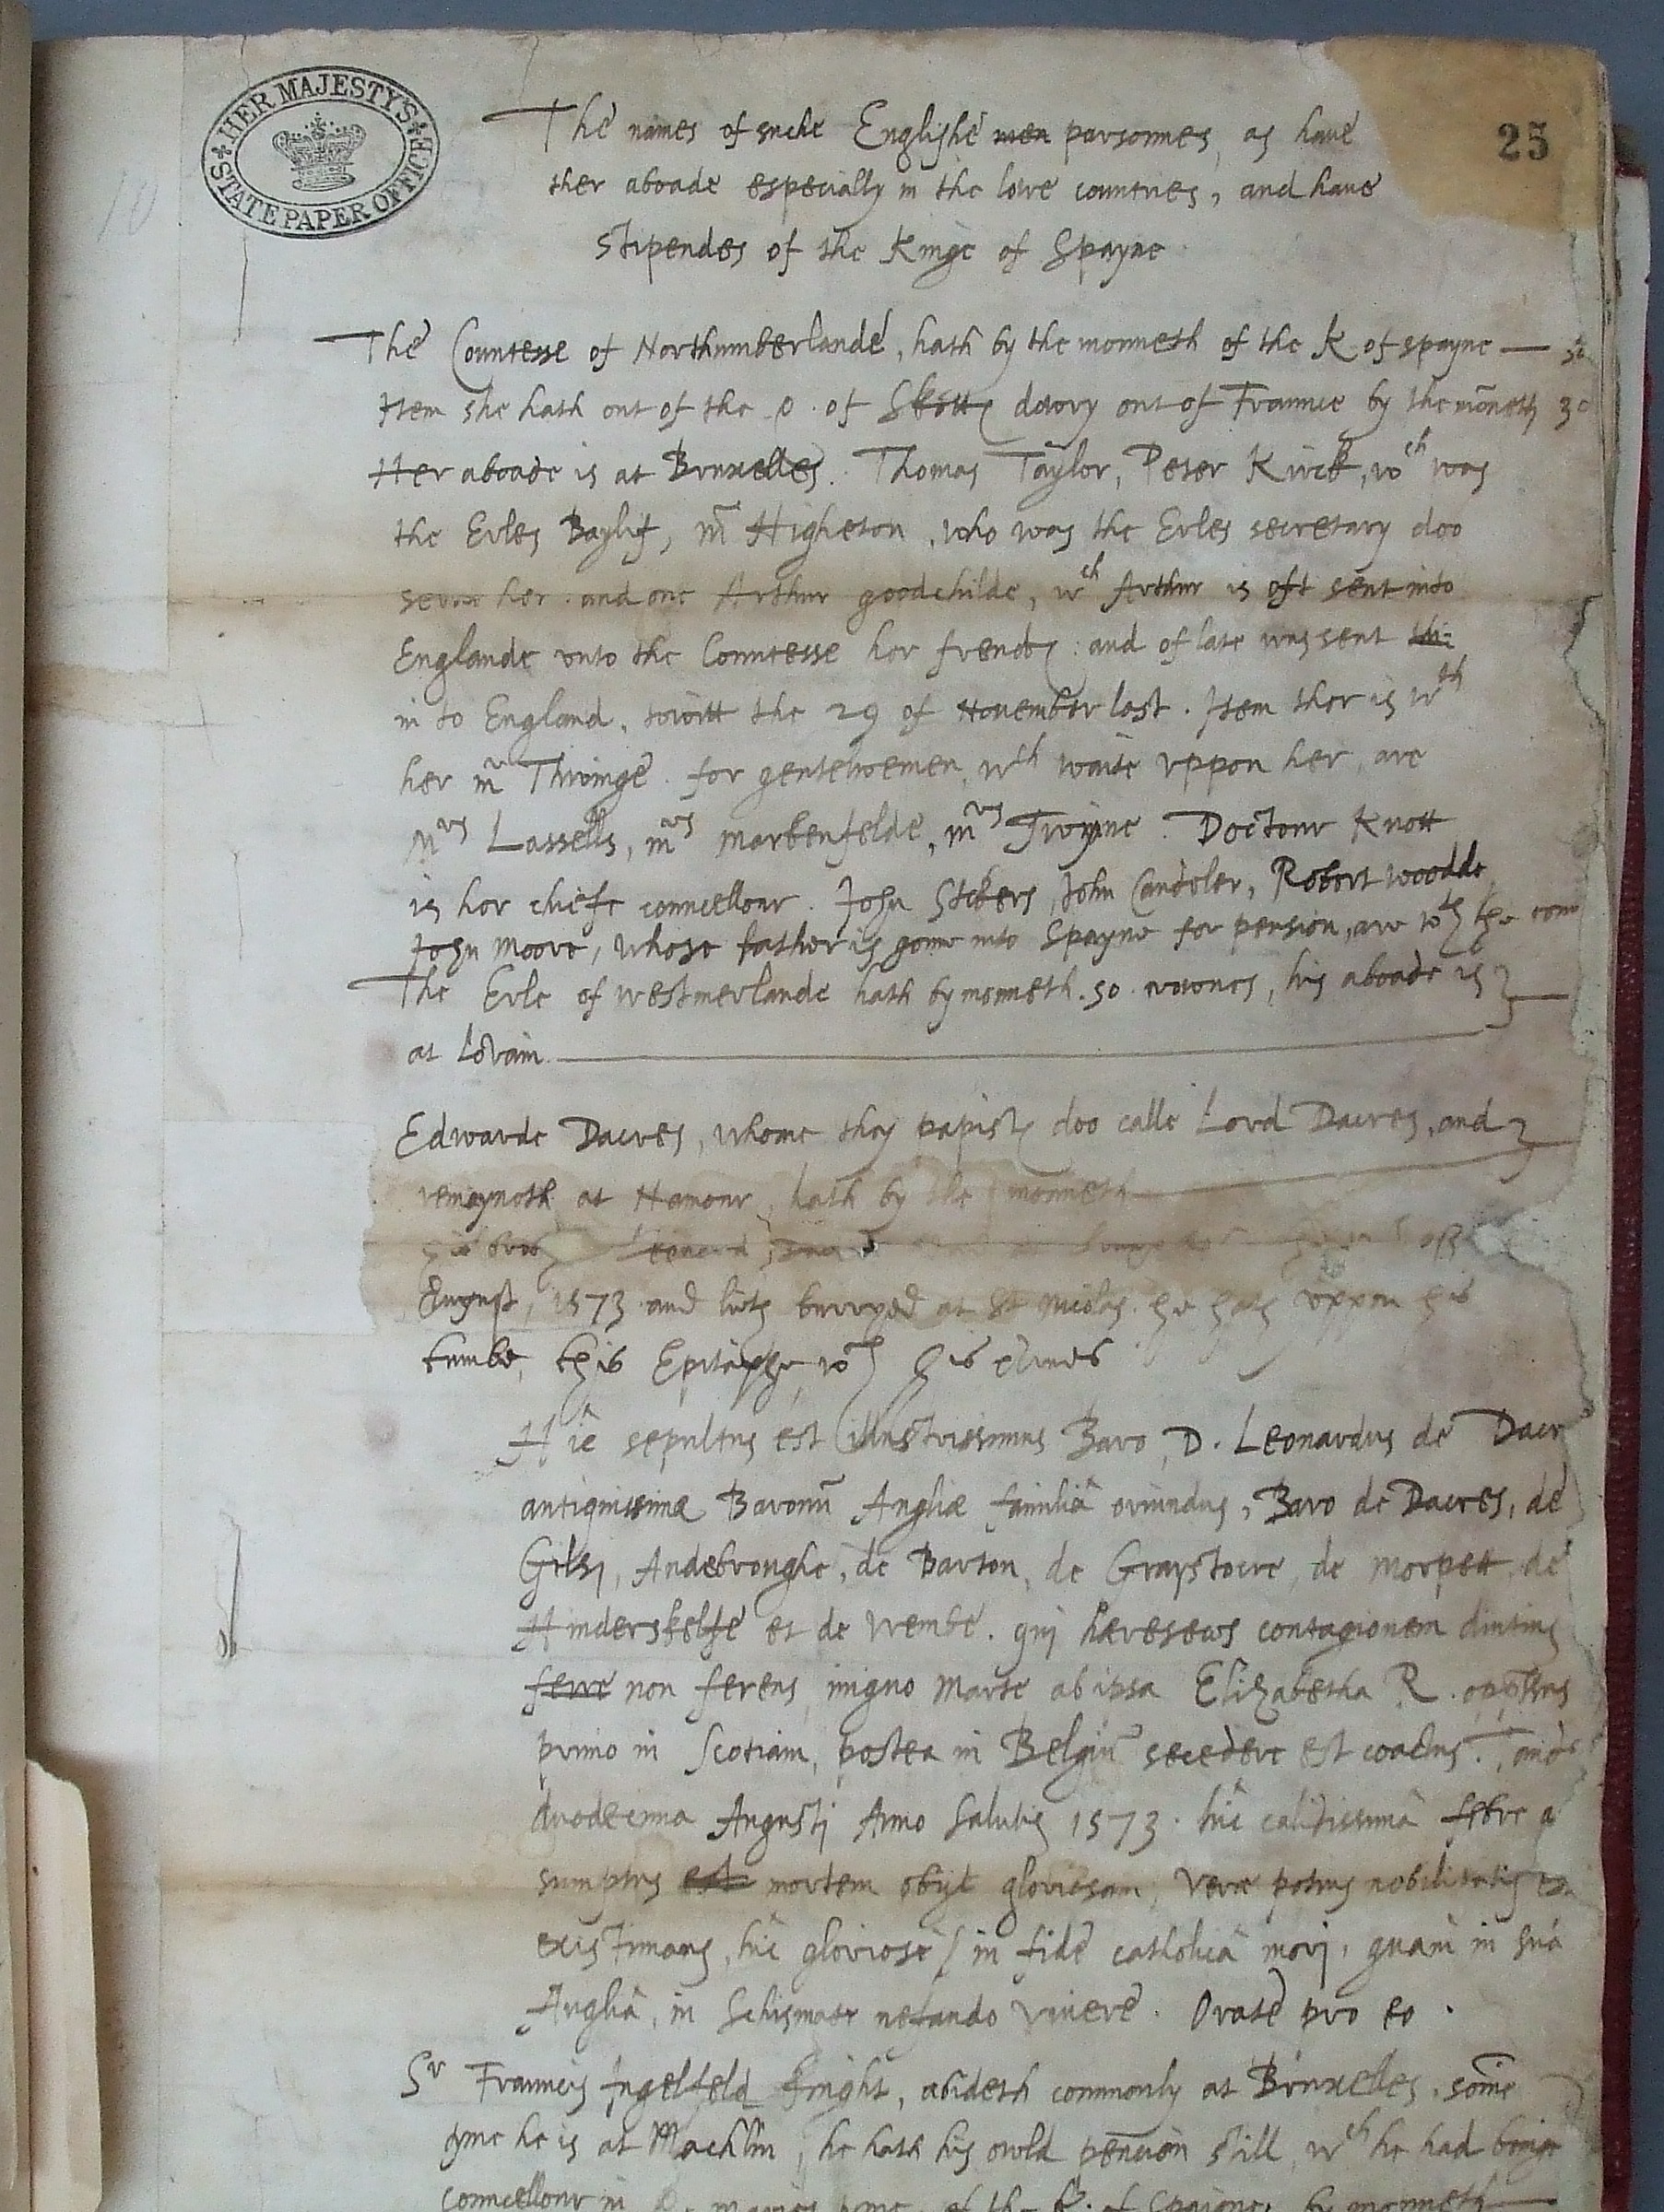 HER MAJESTY'S STATE PAPER OFFICE
25
10
The names of suche Englishe men parsonnes, as have
ther aboade especially in the lowe countries, and have
stipendes of the Kinge of Spayne
The Countesse of Northumberlande, hath by the monneth of the K of spayne —
Item she hath out of the Q. of Skotts dowry out of Fraunce by the mõneth 30
Her aboade is at Bruxelles. Thomas Taylor, Peter Kirck, wch was
the Erles Baylif, mr Higheton, who was the Erles secretary doo
serve her. and one Arthur goodchilde, wch Arthur is oft sent into
Englande unto the Countesse her frendes: and of late was sent thi:
in to England, towitt the 29 of November last. Item ther is wth
her mr Thwinge. for gentelwoemen, wch waite uppon her, are
Mrs Lassells, mrs markenfelde, mrs Twyne. Doctour Knott
is her chiefe councellour. John Stekers, John Candeler, Robert woodde
John Moore, whose father is gone into Spayne for pension, are wth the com
The Erle of westmerlande hath by monneth. 50 crownes, his aboade is
at Lovain.
Edwarde Dacres, whome they papistes doo calle Lord Dacres, and
remayneth at Namour, hath by the monneth
his Leonard
August, 1573 and lieth burryed at St Nicolas. he hath uppon his
tumbe, this Epitaphe, wth his armes
Hîc sepultus est illustrissimus Baro, D. Leonardus de Dacr
antiquissima Baronũ Angliæ familiâ oriundus, Baro de Dacres, de
Gilsj, Andebroughe, de Barton, de Graystocre, de Morpett, de
Hinderskelfe et de Wembe. quj hæresews contagionem diutius
ferre non ferens, iniquo Marte ab ipsa Elizabetha R. oppressus
primo in Scotiam, postea in Belgiũ secedere est coactus. Tande
duodecima Augustj Anno Salutis 1573. hîc calidissimâ febre a
sumptus est mortem obijt gloriosam, veræ potius nobilitatis
existimans, hîc gloriosè in fide catholicâ morj, quàm in suâ
Angliâ, in Schismate nefando vivere. Orate pro eo.
Sr Frauncis Ingelfeld knight, abideth commonly at Bruxelles, some
tyme he is at Machlin, he hath his owld pencion still, wch he had beinge
councellour in Q. maries tyme, of the K. of Spaigne, by monneth